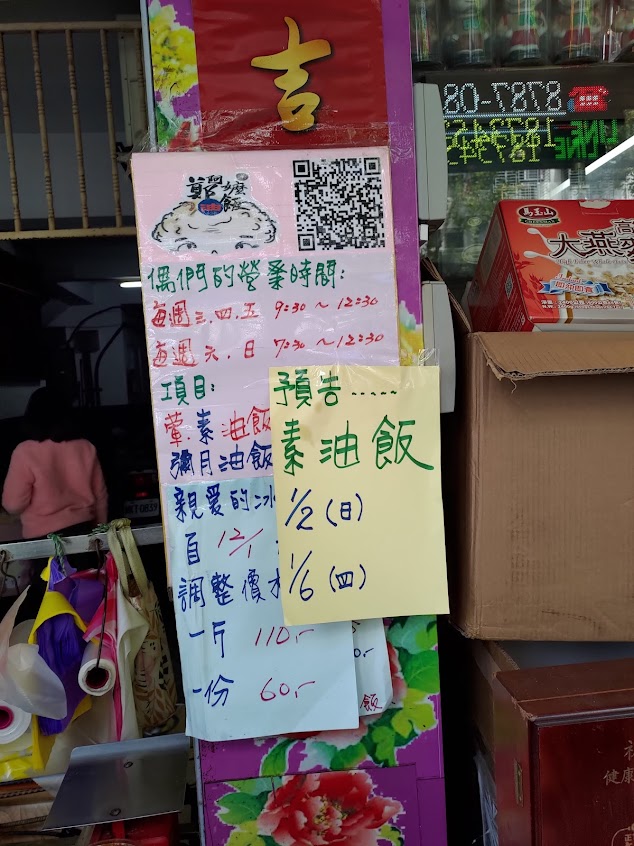 吉
8787-08
LINE
馬玉山
大燕麥
偶們的營業時間:
每週三.四.五 9:30~12:30
每週六.日 7:30~12:30
項目:
葷.素油飯
彌月油飯
親愛的
自 12/1
調整價
一斤 110.-
一份 60.-
飯
預告.....
素油飯
1/2(日)
1/6(四)
健康